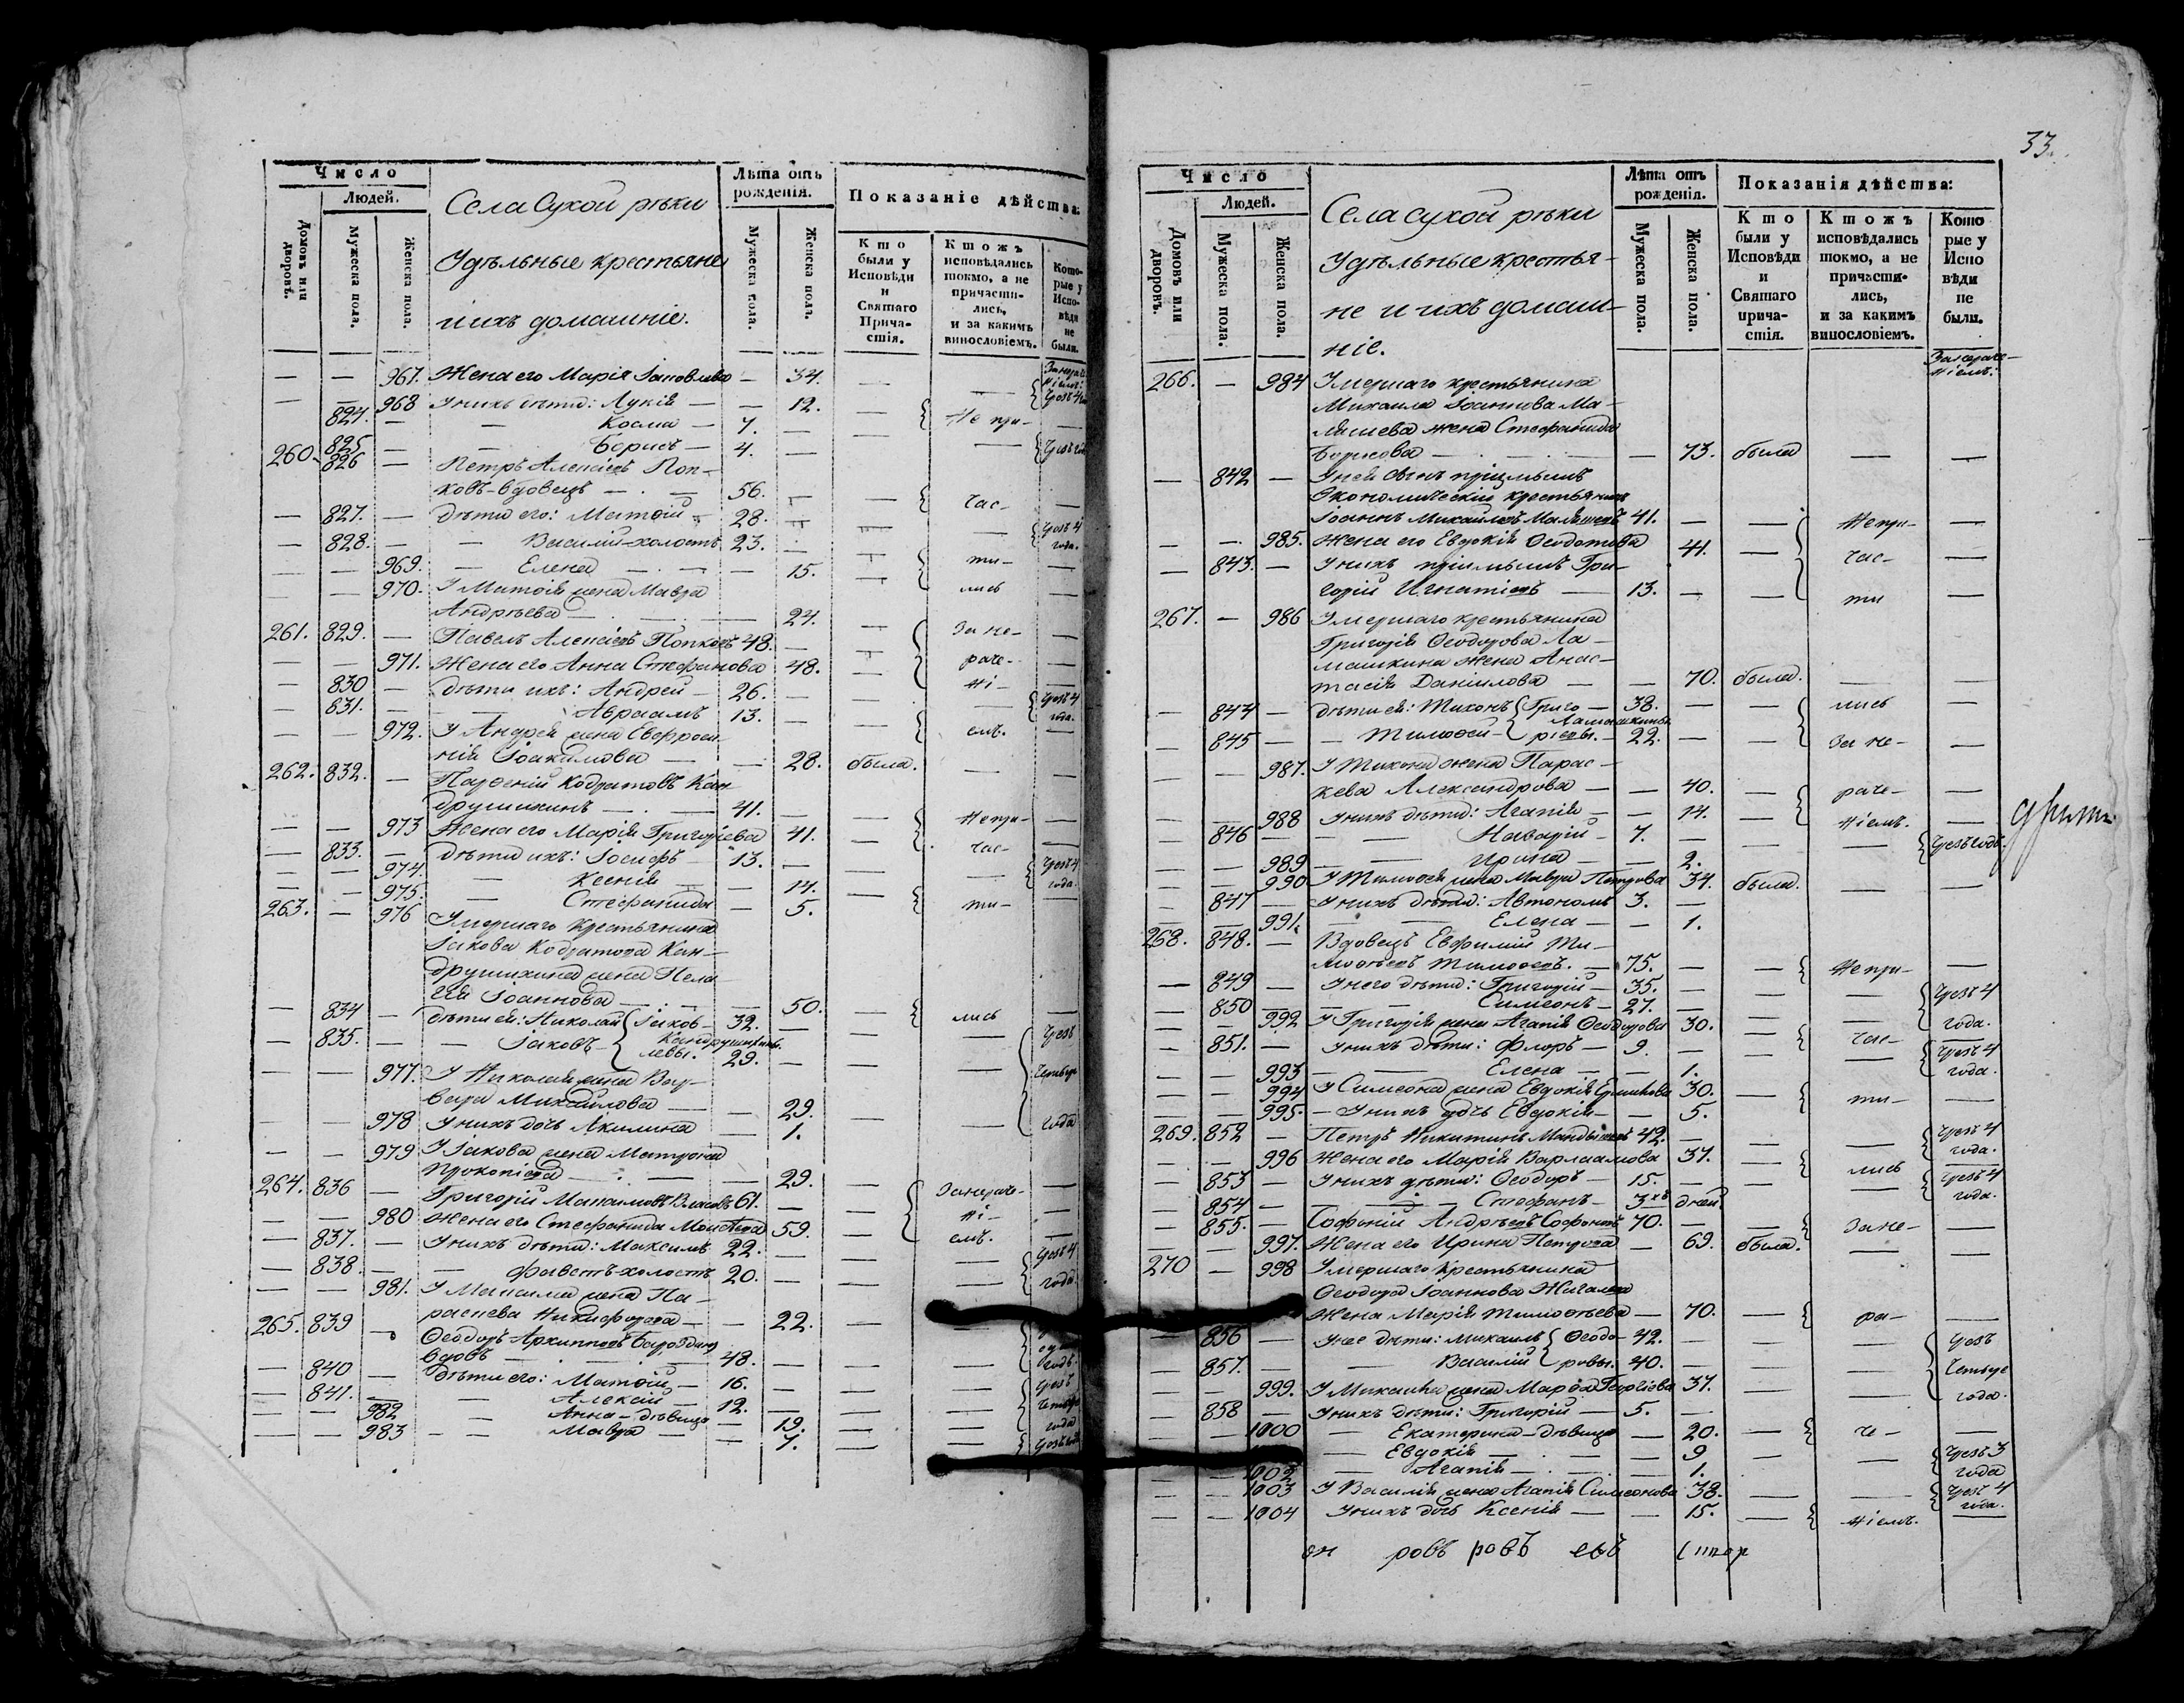 Число
Людей.
Домовъ или дворовъ.
Мужеска пола.
Женска пола.
Села Сухой рѣки
Удѣльные крестьяне
и ихъ домашніе.
Лѣта отъ рожденія.
Мужеска пола.
Женска пола.
Показаніе дѣйства:
Кто были у Исповѣди и Святаго Прича-стія.
Ктожъ исповѣдались токмо, а не причасти-лись, и за какимъ винословіемъ.
Кото-рые у Испо-вѣди не были.
— — 967. Жена его Марія Іаковлева — 34.
— — 968 У нихъ дѣти: Лукія — — 12. —
824. — — Косма — 7. — Не при-
825 — — Борисъ — 4. —
260. 826 — Петръ Алексіевъ Поп-
ковъ-вдовецъ — 56. — час-
— 827. — Дѣти его: Матѳій — 28. — чрезъ 4
— 828. — — Василій-холостъ 23. — года.
— — 969. — Елена — 15. — ти-
— — 970. У Матѳія жена Мавра лись
Андрѣева — — 24. —
261. 829. — Павелъ Алексіевъ Попковъ 48. — За не-
— — 971. Жена его Анна Стефанова 48. — раче-
— 830 — Дѣти ихъ: Андрей — 26. — ні-
— 831. — — Авраамъ 13. — чрезъ 4 года.
— — 972. У Андрея жена Евфроси- емъ.
нія Іоакимова — — 28. была. — —
262. 832. — Парѳеній Кодратовъ Кан-
друшкинъ — 41. —
— — 973 Жена его Марія Григоріева 41. — Не при-
— 833. — Дѣти ихъ: Іосифъ — 13. — час-
— — 974. — Ксенія — 14. — чрезъ 4 года.
— — 975. — Стефанида — 5. — ти-
263. — 976 Умершаго крестьянина
Іакова Кодратова Кан-
друшкина жена Пела-
гія Іоаннова — — 50. — лись
— 834 — Дѣти ей: Николай { Іаков- 32. — чрезъ
— 835. — — Іаковъ { левы. 29. —
— — 977. У Николая жена Вар- четыре
вара Михайлова — — 29. —
— — 978 У нихъ дочь Акилина — 1. — года
— — 979 У Іакова жена Матрона
Прокопіева — — 29. —
264. 836 — Григорій Максимовъ Власовъ 61. — Занераче-
— — 980 Жена его Стефанида Моисѣева 59. — ні-
— 837. — У нихъ дѣти: Максимъ 22. — емъ.
— 838. — — холостъ 20. — чрезъ 4 года
— — 981. У Максима жена Па-
раскева Никифорова — — 22. —
265. 839 — Ѳеодоръ Архиповъ
вдовъ — 48. —
— 840 — Дѣти его: Матѳій — 16. —
— 841. — — Алексій — 12. — чрезъ четыре года
— — 982 — Анна-дѣвица — 19. —
— — 983 — Мавра — 7. —
33.
Число
Людей.
Домовъ или дворовъ.
Мужеска пола.
Женска пола.
Села Сухой рѣки
Удѣльные крестья-
не и ихъ домаш-
ніе.
Лѣта отъ рожденія.
Мужеска пола.
Женска пола.
Показанія дѣйства:
Кто были у Исповѣди и Святаго прича-стія.
Ктожъ исповѣдались токмо, а не причасти-лись, и за какимъ винословіемъ.
Кото рые у Испо вѣди не были.
Занераче-
ніемъ:
266. — 984 Умершаго крестьянина
Михаила Іоаннова Ма-
лышева жена Стефанида
Борисова — — 73. была — —
— 842 — У ней сынъ пріимышъ
Экономическій крестьянинъ
Іоаннъ Михайловъ Малышевъ 41. — Не при-
— — 985. Жена его Евдокія Ѳеодотова 41. — час-
— 843. — У нихъ пріимышъ Гри-
горій Игнатіевъ — 13. — ти
267. — 986 Умершаго крестьянина
Григорія Ѳеодорова Ла-
машкина жена Анас-
тасія Даніилова — — 70. была. — —
— 844 — Дѣти ей: Тихонъ { Григо- 38. — лись
Ламашкины
— 845 — — Тимоѳей { ріевы. — 22. — За не-
— — 987. У Тихона жена Парас-
кева Александрова — — 40. — раче-
— — 988 У нихъ дѣти: Агапія — 14. — ніемъ.
— 846 — — 7. — чрезъ годъ.
— — 989 — Ирина — 2.
— — 990 У Тимоѳея жена Мавра Петрова 34. была. — —
— 847 — У нихъ дѣти: Автономъ 3. —
— — 991. — Елена — — 1.
268. 848. — Вдовецъ Евфимій Ти-
моѳѣевъ Тимоѳеевъ. — 75. — Не при-
— 849 — У него дѣти: Григорій — 35. — чрезъ 4
— 850 — — Симеонъ — 27. —
— — 992 У Григорія жена Агапія Ѳеодорова 30. — года.
— 851. — У нихъ дѣти: Флоръ — 9. — час- чрезъ 4
— — 993 — Елена — 1. года.
— — 994 У Симеона жена Евдокія 30. — ти-
— — 995. — У нихъ дочь Евдокія — 5.
269. 852 — Петръ Никитинъ 42. — чрезъ 4
— — 996 Жена его Марія Варлаамова 37. — года.
— 853 — У нихъ дѣти: Ѳеодоръ — 15. — лись чрезъ 4
— 854 — — Стефанъ — 3хъ дней. года.
— 855. — Софоній Андрѣевъ 70. — Зане-
— — 997. Жена его Ирина Петрова — 69. была. — —
270 — 998 Умершаго крестьянина
Ѳеодора Іоаннова
жена Марія Тимоѳѣева — 70. — ра-
— 856 — У нее дѣти: Михаилъ { Ѳеодо- 42. — чрезъ
— 857. — — Василій { ровы. 40. — четыре
— — 999. У Михаила жена Марѳа Георгіева 37. — года.
— 858 — У нихъ дѣти: Григорій — 5. —
— — 1000 — Екатерина-дѣвица — 20. — че-
Евдокія — 9 — чрезъ 3
1002 — Агапія — 1. года
— — 1003 У Василія жена Агапія Симеонова 38. — чрезъ 4 года.
— — 1004 У нихъ дочь Ксенія — 15. — ніемъ.
ровъ ровъ евъ